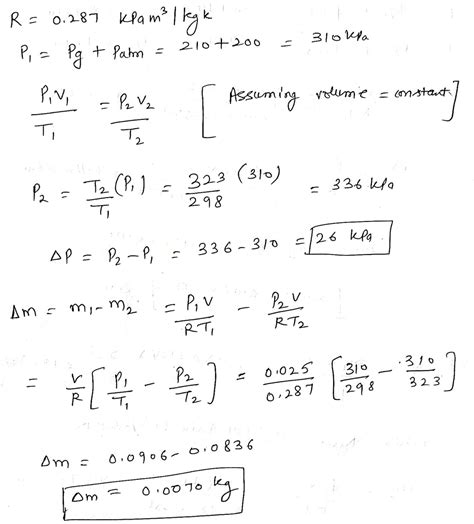 R = 0.287 kPa m³/kg k
P₁ = Pg + Patm = 210+200 = 310 kPa
P₁V₁/T₁ = P₂V₂/T₂ [Assuming volume = constant]
P₂ = T₂/T₁ (P₁) = 323/298 (310) = 336 kPa
ΔP = P₂-P₁ = 336-310 = 26 kPa
Δm = m₁-m₂ = P₁V/RT₁ - P₂V/RT₂
= V/R [P₁/T₁ - P₂/T₂] = 0.025/0.287 [310/298 - 310/323]
Δm = 0.0906-0.0836
Δm = 0.0070 kg